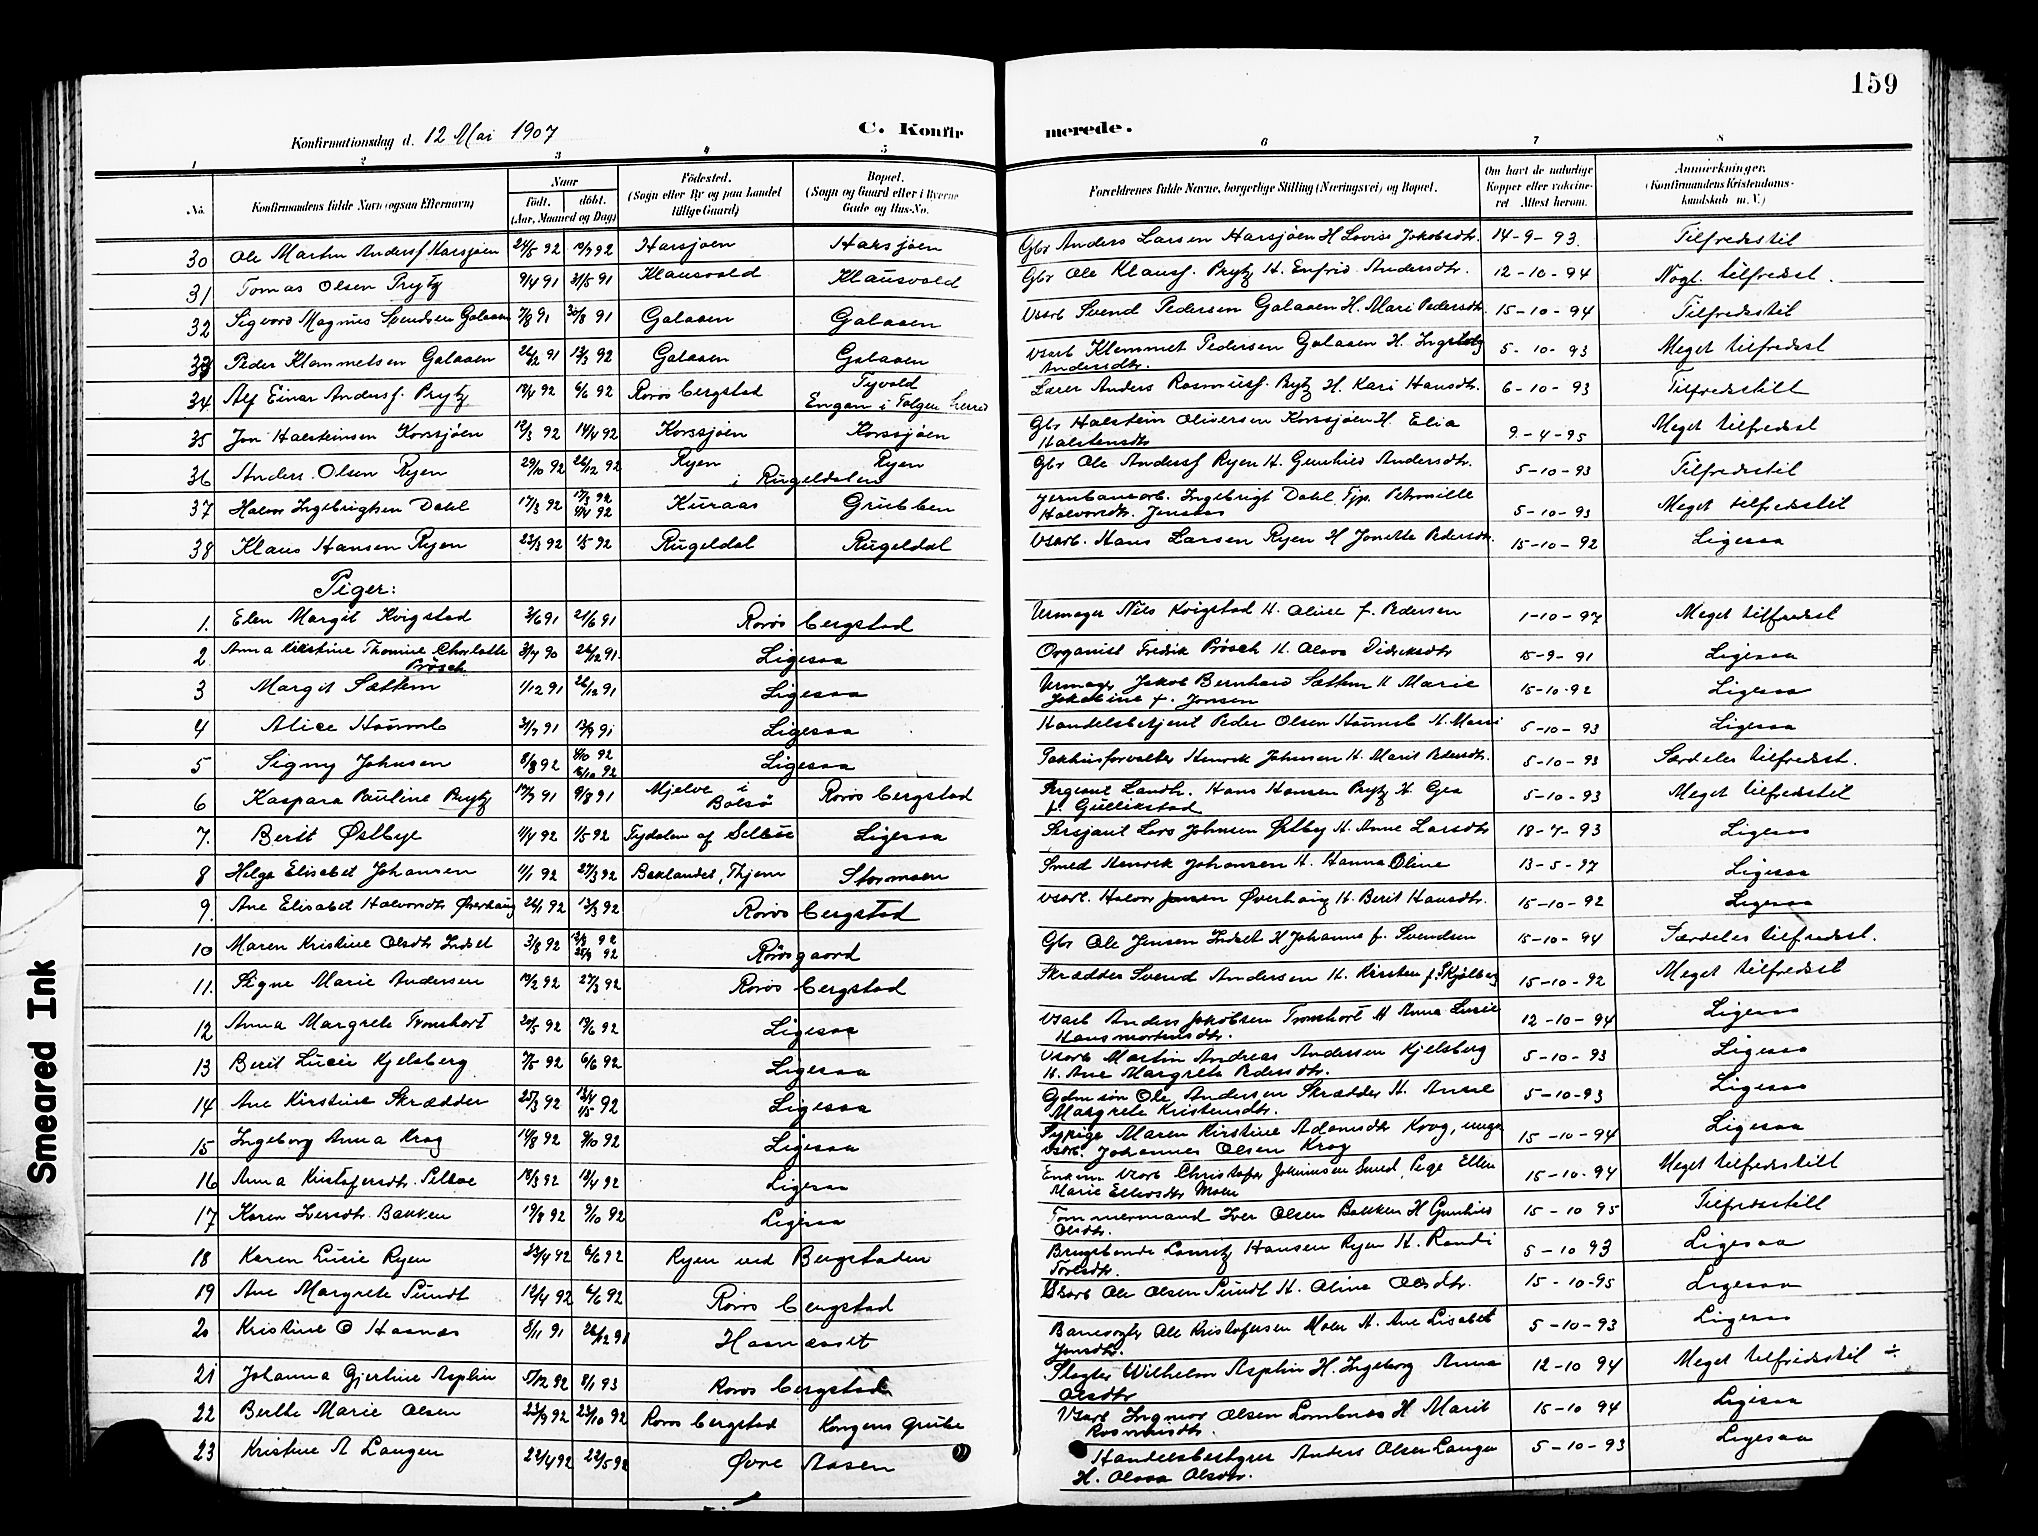 159
Konfirmationsdag d. 12 Mai 1907 C. Konfirmerede.
1 2 3 4 5 6 7 8
No. Konfirmandens fulde Navn (ogsaa Efternavn) Naar Født. døbt. (Aar, Maaned og Dag) Fødested. (Sogn eller By og paa Landet tillige Gaard) Bopæl. (Sogn og Gaard eller i Byerne Gade og Hus-No. Forældrenes fulde Navne, borgerlige Stilling (Næringsvei) og Bopæl. Om havt de naturlige Kopper eller vaccineret Attest herom. Anmærkninger. (Konfirmandens Kristendomskundskab m. V.)
30 Ole Martin Andersf Harsjøen 24/5 92 10/7 92 Harsjøen Harsjøen Gbr Anders Larsen Harsjøen H. Lovise Jakobsdtr. 14-9-93. Tilfredsstil
31 Tomas Olsen Prytz 9/4 91 31/5 91 Klausvold Klausvold Gbr Ole Klausf. Prytz H. Enfrid Andersdtr. 12-10-94 Nogl. tilfredsst.
32 Sigvard Magnus Svendsen Galaaen 7/8 91 30/8 91 Galaaen Galaaen Vsarb Svend Pedersen Galaaen H. Mari Pedersdtr. 15-10-94 Tilfredsstil
33 Peder Klemmetsen Galaaen 26/12 91 13/3 92 Galaaen Galaaen Vsarb Klemmet Pedersen Galaaen H. Ingeborg 5-10-93 Meget tilfredsst
Andersdtr.
34 Alf Einar Andersf. Prytz 18/4 92 6/6 92 Røros Bergstad Tyvold Lærer Anders Rasmusf. Prytz H. Kari Hansdtr. 6-10-93 Tilfredsstill
Engan i Tolgen herred
35 Jon Halsteinsen Korssjøen 12/3 92 14/4 92 Korssjøen Korssjøen Gbr Halstein Oliversen Korssjøen H. Elia 9-4-95 Meget tilfredsst
Halstensdtr
36 Anders Olsen Ryen 29/10 92 26/12 92 Ryen Ryen Gbr Ole Andersf Ryen H. Gunhild Andersdtr. 5-10-93 Tilfredsstil
i Rugeldalen
37 Halvor Ingebrigtsen Dahl 17/3 92 17/3 92 Kuraas Grubben Jernbanearb. Ingebrigt Dahl Tjp. Petronille 5-10-93 Meget tilfredsstil
Halvorsdtr.
38 Klaus Hansen Ryen 23/3 92 1/5 92 Rugeldal Rugeldal Vsarb. Hans Larsen Ryen H Jonette Pedersdtr. 15-10-92 Ligesaa
Piger:
1. Elen Margit Kvigstad 3/6 91 21/6 91 Røros Bergstad Urmager Nils Kvigstad H. Oline f. Pedersen 1-10-97 Meget tilfredsst
2 Anna Kirstine Thomine Charlotte 3/7 90 26/12 91. Ligesaa Organist Fredrik Prösch H. Olava Didriksdtr 15-9-91 Ligesaa
Prösch
3 Margit Sættem 1/12 91 26/12 91 Ligesaa Urmager Jakob Bernhard Sættem H Marie 15-10-92 Ligesaa
Jakobine f. Jonsen
4 Alice 3/7 91 13/9 91 Ligesaa Handelsbetjent Peder Olsen 5-10-93 Ligesaa
5 Signy Johnsen 8/8 92 16/10 92 Ligesaa Pakhusforvalter Henrik Johnsen H. Marit Pedersdtr. 5-10-93 Særdeles tilfredsst.
6 Kaspara Pauline Prytz 17/7 91 9/8 91 Mjelve i Bolsø Røros Bergstad Sergeant Landh. Hans Hansen Prytz H. Gea 5-10-93 Meget tilfredsstil
f. Gullikstad
7. Berit Østbye 11/4 92 1/5 92 Tydalen af Selbue Ligesaa Sersjant Lars Johnsen Østby H. Anne Larsdtr 18-7-93 Ligesaa
8 Helga Elisabet Johansen 1/1 92 27/3 92 Baklandet, Thjem Stormoen Smed Henrik Johansen H. Hanna Oline 13-5-97 Ligesaa
9. Ane Elisabet Halvorsdtr Øverhaug 24/1 92 13/3 92 Røros Bergstad Vsarb. Halvor Jonsen Øverhaug H. Berit Hansdtr. 15-10-92 Ligesaa
10 Maren Kristine Olsdtr Indset 3/8 92 25/9 92 Rørosgaard Gbr Ole Jensen Indset H Johanne f. Svendsen 15-10-94 Særdeles tilfredsst.
11. Signe Marie Andersen 19/2 92 27/3 92 Røros Bergstad Skrædder Svend Andersen H. Kirsten f. Kjølberg 15-10-92 Meget tilfredsst
12 Anna Margrete Tronshart 20/5 92 19/6 92 Ligesaa Vsarb Anders Jakobsen Tronshart H Anna Lucie 12-10-94 Ligesaa
Hansmortensdtr.
13 Berit Lucie Kjelsberg 7/5 92 6/6 92 Ligesaa Vsarb Martin Andreas Andersen Kjelsberg 5-10-93 Ligesaa
H. Ane Margrete Pedersdtr.
14 Ane Kirstine Skrædder 25/3 92 1/5 92 Ligesaa Ole Andersen Skrædder H. Anne 5-10-93 Ligesaa
Margrete Kristensdtr.
15 Ingeborg Anna Krog 14/8 92 9/10 92 Ligesaa Sypige Maren Kirstine Adamsdtr Krog, unge 15-10-94 Ligesaa
Vsarb. Johannes Olsen Krog
16 Anna Kristofersdtr. Selboe 13/3 92 18/4 92 Ligesaa Enkem. Vsarb Christofer Johnsen Smed, Pege Ellen 15-10-94 Meget tilfredsstill
Marie Ellevsdtr Moen
17 Karen Iversdtr. Bakken 19/8 92 9/10 92 Ligesaa Tømmermand Iver Olsen Bakken H Gunhild 15-10 95 Tilfredsstill
Olsdtr.
18 Karen Lucie Ryen 23/4 92 6/6 92 Ryen ved Bergstaden Brugsbonde Lauritz Hansen Ryen H. Randi 5-10 93 Ligesaa
Toresdtr.
19 Ane Margrete Sundt 12/4 92 6/6 92 Røros Bergstad Vsarb Ole Olsen Sundt H. Oline Olsdtr. 15-10-95 Ligesaa
20 Kristine O Haanæs 8/11 91 26/12 91 Haanæsset Banevogter Ole Kristofersen Moen H. Ane Lisabet 5-10-93 Ligesaa
Jonsdtr.
21 Johanna Gjertine Asplin 5/12 92 8/1 93 Røros Bergstad Slagter Wilhelm Asplin H. Ingeborg Anna 12-10 94 Meget tilfredsstil ÷
Olsdtr
22 Berthe Marie Olsen 23/9 92 23/10 92 Røros Bergstad Kongens Grube Vsarb Ingmar Olsen Lombnæs H Marit 15-10 94 Ligesaa
Rasmusdtr.
23 Kristine A Langen 22/4 92 22/5 92 Øvre Aasen Handelsbestyrer Anders Olsen Langen 5-10-93 Ligesaa
H. Olava Olsdtr.
Smeared Ink